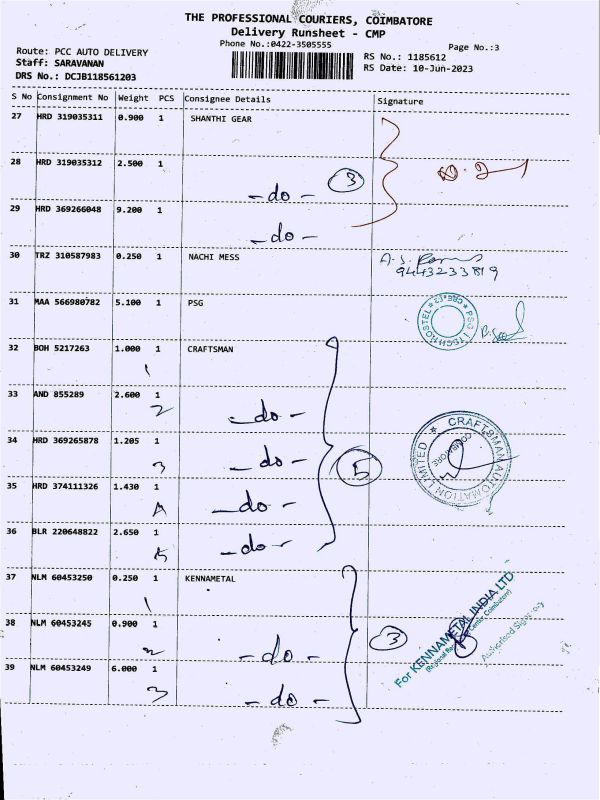 THE PROFESSIONAL COURIERS, COIMBATORE
Delivery Runsheet - CMP
Phone No.:0422-3505555
Page No.:3
Route: PCC AUTO DELIVERY
Staff: SARAVANAN
DRS No.: DCJB118561203
RS No.: 1185612
RS Date: 10-Jun-2023
S No Consignment No Weight PCS Consignee Details Signature
27 HRD 319035311 0.900 1 SHANTHI GEAR
28 HRD 319035312 2.500 1
- do - 3
29 HRD 369266048 9.200 1
- do -
30 TRZ 310587983 0.250 1 NACHI MESS
9443233819
31 MAA 566980782 5.100 1 PSG
32 BOH 5217263 1.000 1 CRAFTSMAN
1
33 AND 855289 2.600 1
2 - do -
34 HRD 369265878 1.205 1
3 - do - 5
CRAFTSMAN AUTOMATION LIMITED
COIMBATORE
35 HRD 374111326 1.430 1
4 - do -
36 BLR 220648822 2.650 1
5 - do -
37 NLM 60453250 0.250 1 KENNAMETAL
1
38 NLM 60453245 0.900 1
2 - do - 3
For KENNAMETAL INDIA LTD.
Authorised Signatory
39 NLM 60453249 6.000 1
3 - do -